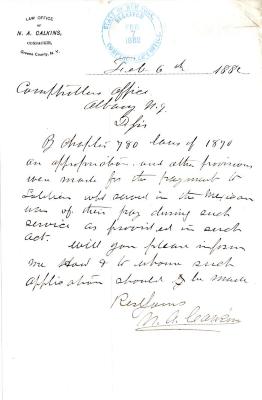 LAW OFFICE
OF
N. A. CALKINS,
COXSACKIE,
Greene County, N. Y.
STATE OF NEW YORK
RECEIVED
FEB
7
1882
COMPTROLLER'S OFFICE
Feb 6th 1882
Comptrollers office
Albany N.Y.
D Sir
By Chapter 780 laws of 1870
an appropriation and other provisions
were made for the payment to
Soldiers who served in the Mexican
war of their pay during such
service as provided in such
act.
Will you please inform
me How & to whom such
application should be made
Resp Yours
N. A. Calkins